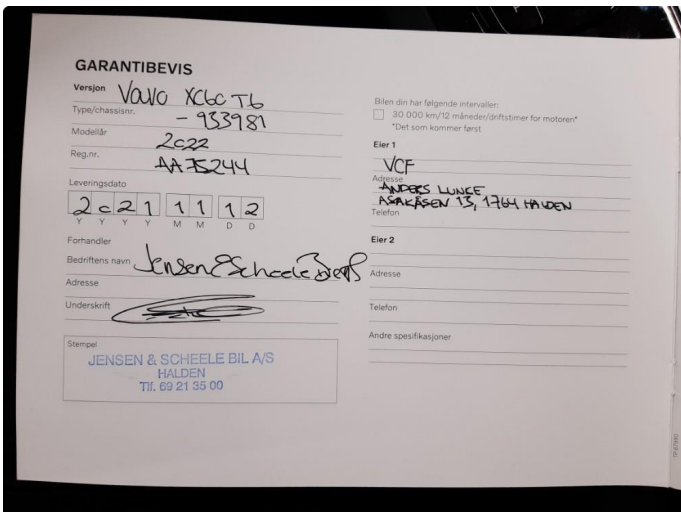 GARANTIBEVIS
Versjon Volvo XC60 T6
Type/chassisnr. - 933981
Modellår 2022
Reg.nr. AA75244
Leveringsdato
2021 11 12
Y Y Y Y M M D D
Forhandler
Bedriftens navn Jensen & Scheele Bil AS
Adresse
Underskrift
Stempel
JENSEN & SCHEELE BIL A/S
HALDEN
Tlf. 69 21 35 00
Bilen din har følgende intervaller:
30 000 km/12 måneder/driftstimer for motoren*
*Det som kommer først
Eier 1
VCF
ANDERS LUNKE
Adresse ASAKÅSEN 13, 1764 HALDEN
Telefon
Eier 2
Adresse
Telefon
Andre spesifikasjoner